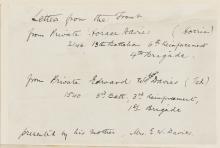 Letters from the Front
from Private Horace Davies (Horrie)
2140 13th Battalion 6th Reinforcement
4th Brigade.
from Private Edward Davies (Ted)
1540 3rd Batt, 3rd Reinforcement,
1st Brigade
presented by his mother Mrs E. W. Davies.